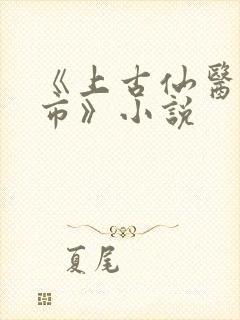 《上古仙醫
市》小說
夏尾